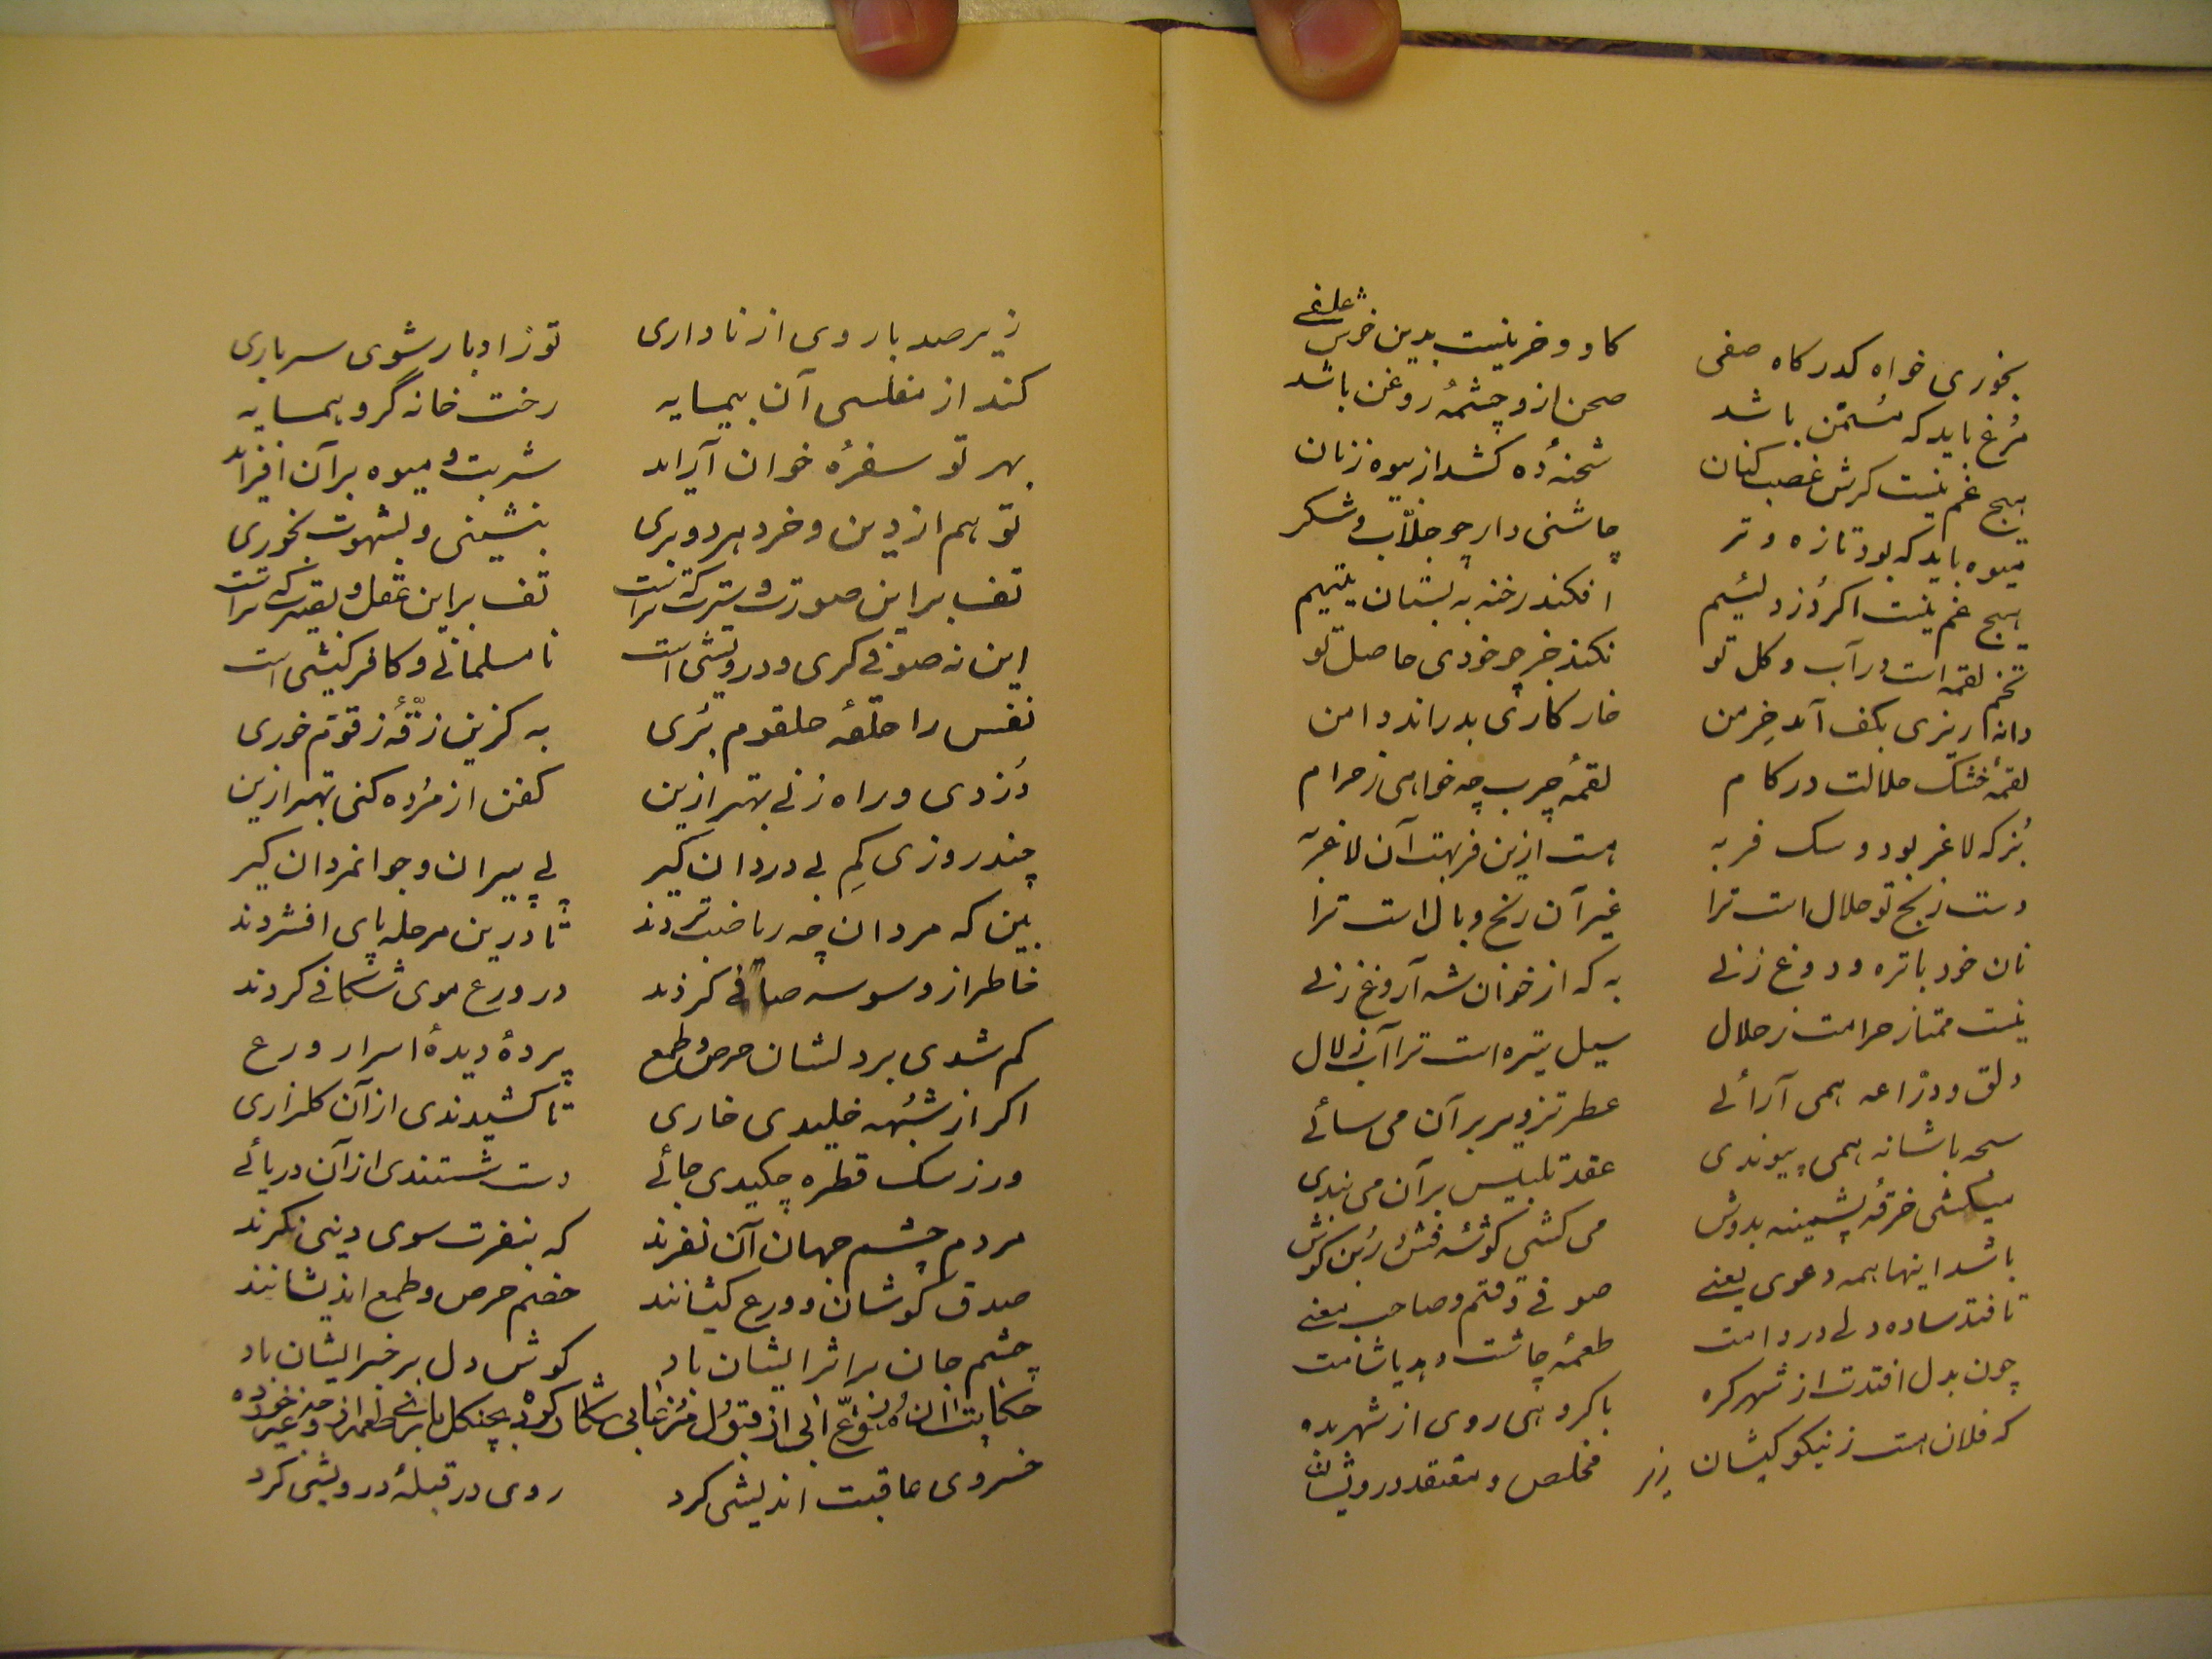 بخوری خواه کدر کاه صفی کاو و خر نیست بدین خوش علفی
مُرغ باید که مُسَمّن باشد صحن ازو چشمهٔ روغن باشد
هیچ غم نیست کرش غصب کنان شحنهٔ ده کشد از بیوه زنان
میوه باید که بود تازه و تر چاشنی دار چو جلّاب و شکر
هیچ غم نیست اکر دُزد لئیم افکند رخنه به بستان یتیم
تخم لقمه است در آب و کل تو نکند جز چو خودی حاصل تو
دانه ار ریزی بکف آمد خِرمن خار کاری بدراند دامن
لقمهٔ خشک حلالت در کام لقمهٔ چرب چه خواهی ز حرام
بُز که لاغر بود و سک فربه هست ازین فربهت آن لاغر به
دست رنج تو حلال است ترا غیر آن رنج و بال است ترا
نان خود با تره و دوغ زنی به که از خوان شه آروغ زنی
نیست ممتاز حرامت ز حلال سیل تیره است ترا آب زلال
دلق و درّاعه همی آرائی عطر تزویر بر آن می سائی
سبحه با شانه همی پیوندی عقد تلبیس بر آن می بندی
میکشی خرقهٔ پشمینه بدوش می کشی کوشهٔ فش از بُن کوش
باشد اینها همه دعوی یعنی صوفی وقتم و صاحب معنی
تا فتد ساده دلی در دامت طعمهٔ چاشت دهد یا شامت
چون بدل افتدت از شهر کره با کروهی روی از شهر بده
که فلان هست ز نیکو کیشان مخلص و معتقد درویشان
زیر
زیر صد بار وی از ناداری تو ز ادبار شوی سرباری
کند از مفلسی آن بیمایه رخت خانه گرو همسایه
بهر تو سفرهٔ خوان آراید شربت و میوه بر آن افزاید
تو هم از دین و خرد هر دو بری بنشینی و بشهوت بخوری
تف بر این صورت و سیرت که تراست تف بر این عقل و بصیرت که تراست
این نه صوفی کری و درویشی است نامسلمانی و کافر کیشی است
نفس را حلقهٔ حلقوم بُری به کزین زقّهٔ زقّوم خوری
دُزدی و راه زنی بهتر ازین کفن از مُرده کنی بهتر ازین
چند روزی کمِ بی دردان کیر پی پیران و جوانمردان کیر
ببین که مردان چه ریاضت بردند تا درین مرحله پای افشردند
خاطر از وسوسه صافی کردند در ورع موی شکافی کردند
کم شدی بر دلشان حرص و طمع پردهٔ دیدهٔ اسرار ورع
اکر از شبُهه خلیدی خاری تا کشیدندی از آن کلزاری
ور ز سک قطره چکیدی جائی دست شستندی از آن دریائی
مردم چشم جهان آن نفرند که بنفرت سوی دینی نکرند
صدق کوشان و ورع کیشانند خصم حرص و طمع اندیشانند
چشم جان بر اثر ایشان باد کوش دل بر خبر ایشان باد
حکایت از قبول مُرغابی بچنکل باز
خسروی عاقبت اندیشی کرد روی در قبلهٔ درویشی کرد